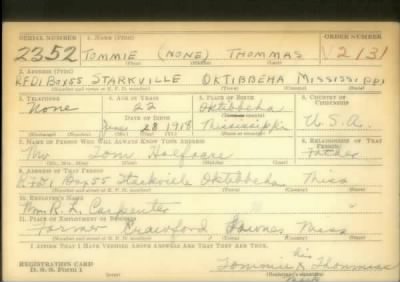 SERIAL NUMBER 1. NAME (Print) ORDER NUMBER
2352 TOMMIE (NONE) THOMMAS V2131
2. ADDRESS (Print)
RFD1 Box55 STARKVILLE OKTIBBEHA MISSISSIPPI
3. TELEPHONE 4. AGE IN YEARS 5. PLACE OF BIRTH 6. COUNTRY OF CITIZENSHIP
None 22 Oktibbeha
DATE OF BIRTH
June 28 1918 Mississippi U.S.A.
7. NAME OF PERSON WHO WILL ALWAYS KNOW YOUR ADDRESS 8. RELATIONSHIP OF THAT PERSON
Mr Tom Father
9. ADDRESS OF THAT PERSON
Box 55 Starkville Oktibbeha Miss
10. EMPLOYER'S NAME
Mr. R. L. Carpenter
11. PLACE OF EMPLOYMENT OR BUSINESS
Farmer Crawford Lowndes Miss
I AFFIRM THAT I HAVE VERIFIED ABOVE ANSWERS AND THAT THEY ARE TRUE.
his
REGISTRATION CARD Tommie X Thommas
D. S. S. Form 1
mark